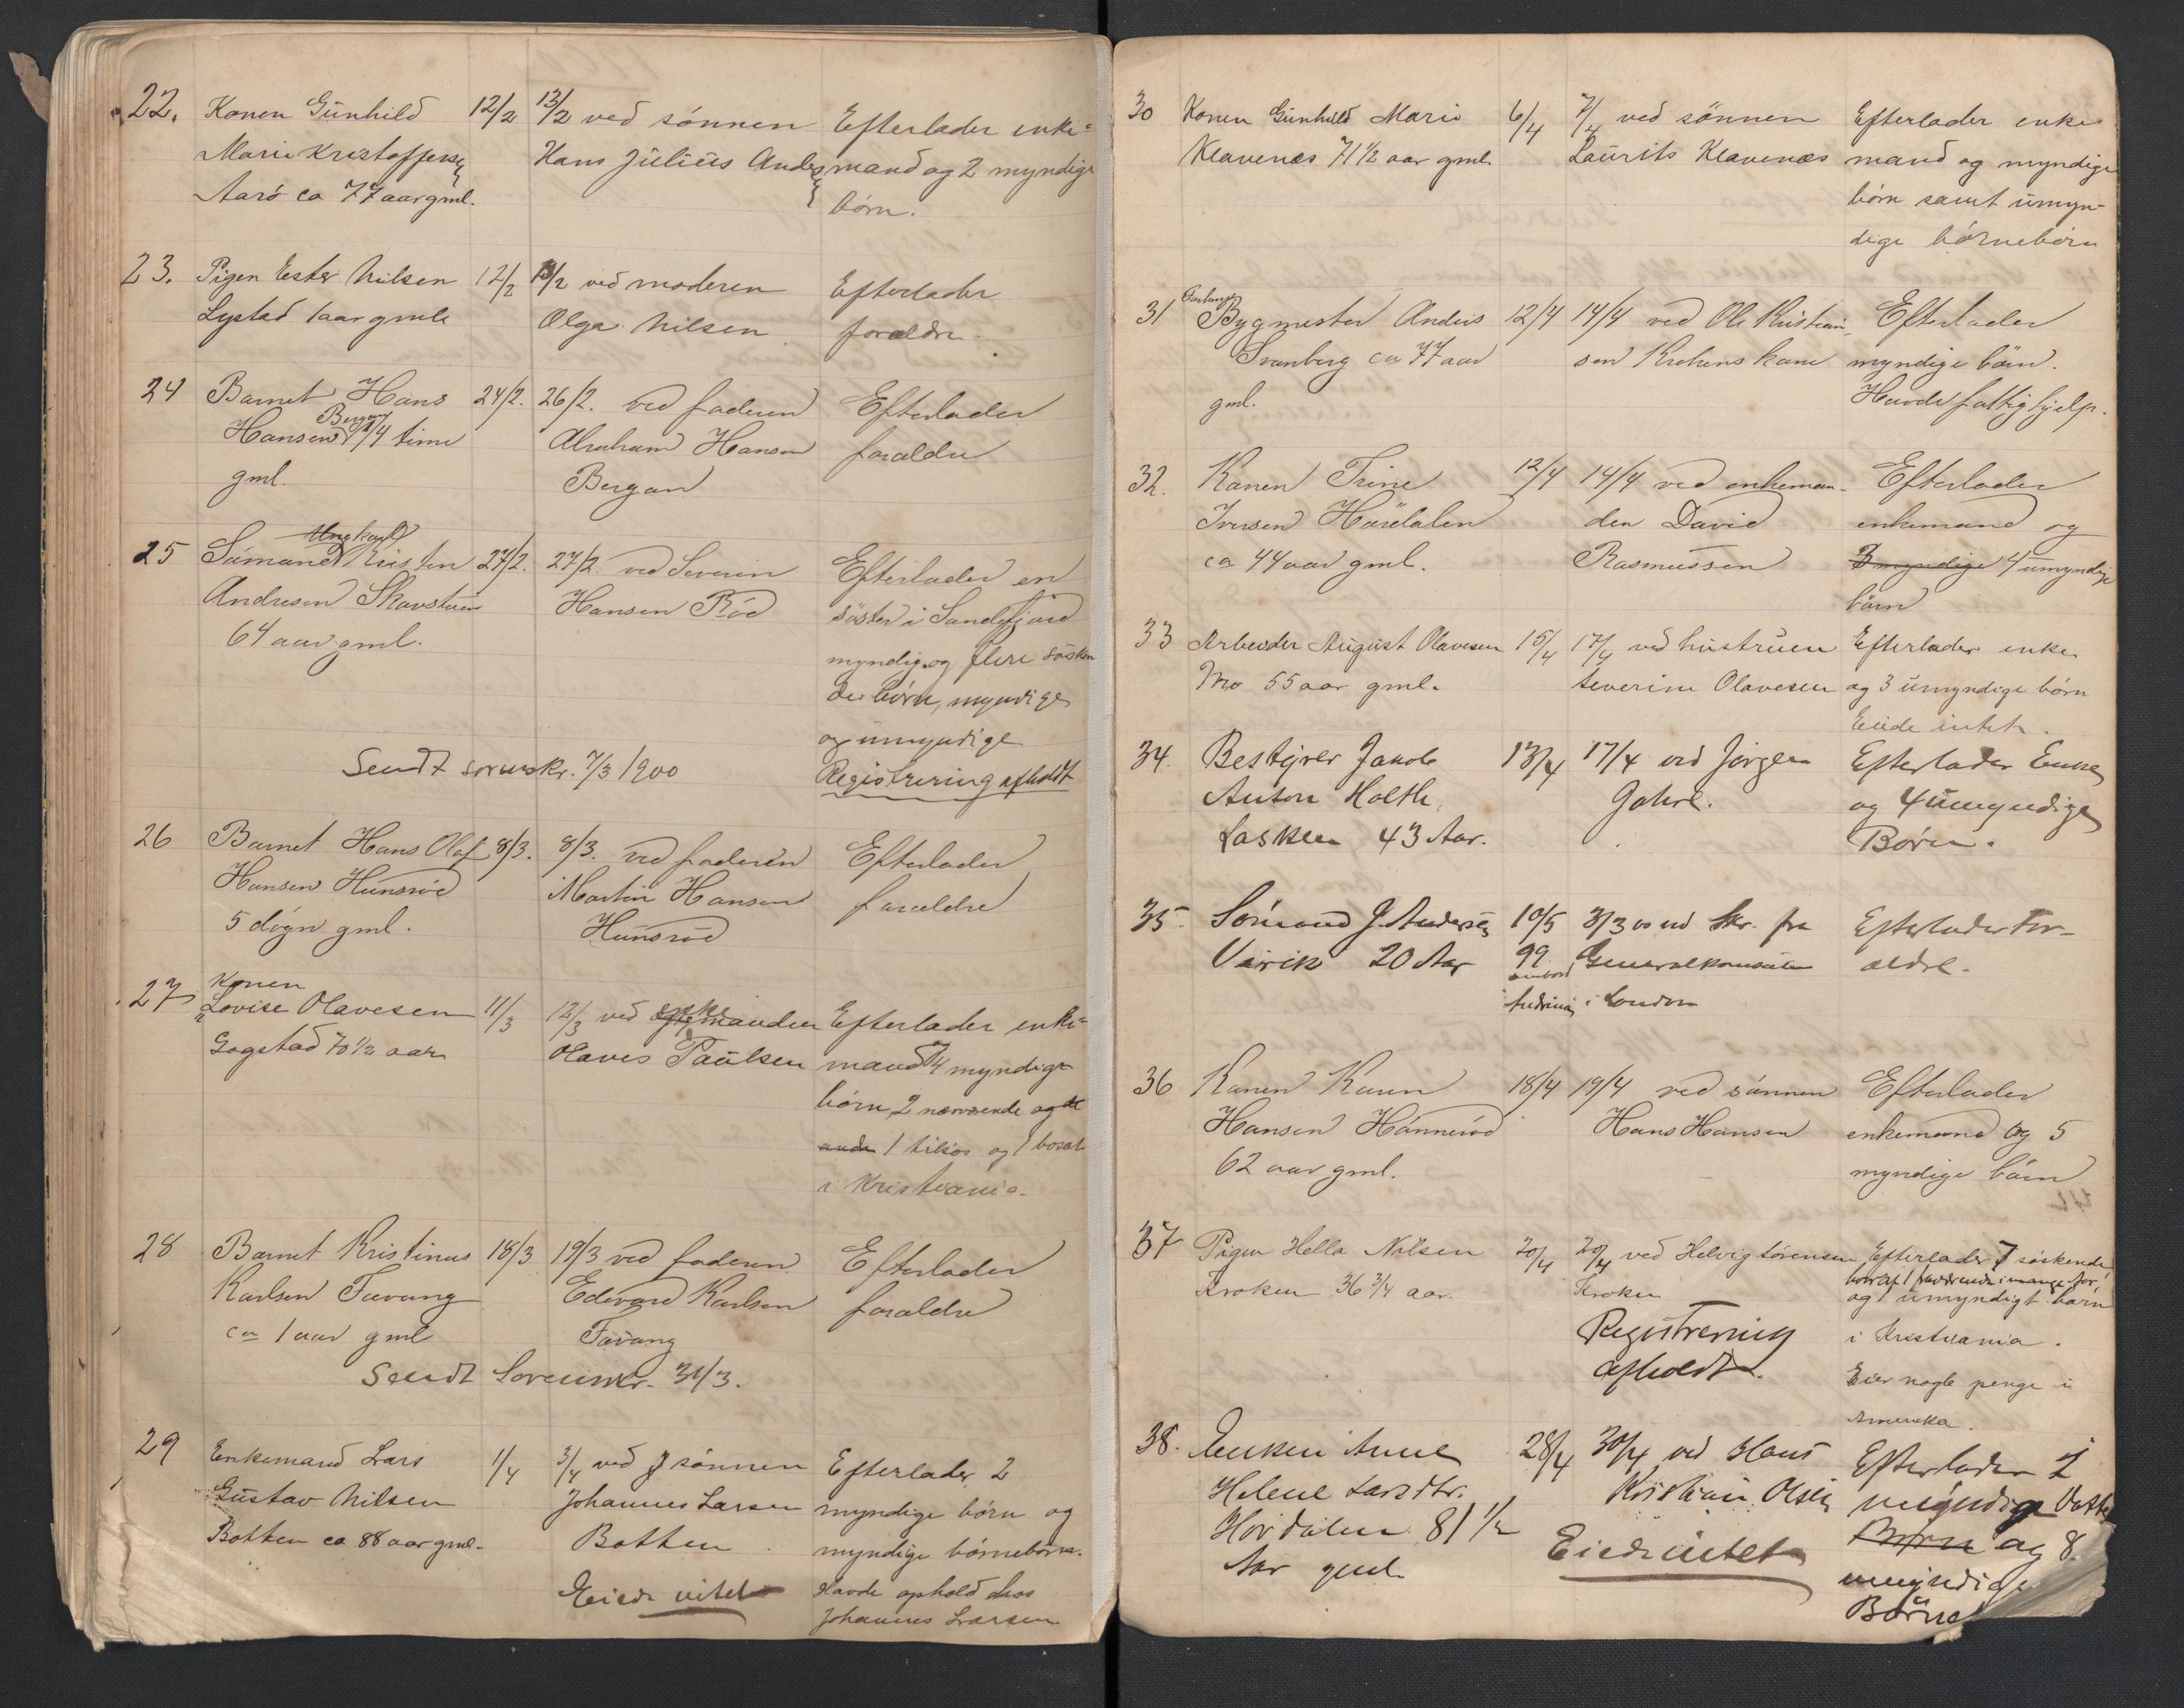 22. Konen Gunhild 12/2 13/2 ved sønnen Efterlader enke-
Marie Kristoffersen Hans Julius Anders mand og 2 myndige
Aarö ca 77 aar gml. børn.
23. Pigen Ester Nilsen 12/2 13/2 ved moderen Efterlader
Lystad 1 aar gml. Olga Nilsen forældre
24 Barnet Hans 24/2. 26/2. ved faderen Efterlader
Hansen Bergan 1/4 time Abraham Hansen forældre
gml. Bergan
Ungkarl
25 Sømand Kristen 27/2. 27/2. ved Severin Efterlader en
Andresen Skavstuen Hansen Röd söster i Sandefjord
64 aar gml. myndig og flere søsken
de børn, myndige
og umyndige
Sendt sorenskr. 7/3 1900 Registrering afholdt
26 Barnet Hans Olaf 8/3. 8/3. ved faderen Efterlader
Hansen Hunsröd Martin Hansen forældre
5 døgn gml. Hunsröd
Konen
27 Lovise Olavesen 11/3 12/3 ved enkemanden Efterlader enke-
Gogstad 70 1/2 aar Olaves Paulsen mand og 4 myndige
børn, 2 nærværende og de
andre 1 tilsøs og 1 bosat
i Kristiania.
28 Barnet Kristinus 18/3 19/3 ved faderen Efterlader
Karlsen Fævang Edvard Karlsen forældre
ca 1 aar gml Fævang
Sendt Sorenskr. 31/3.
29 Enkemand Lars 1/4 3/4 ved sønnen Efterlader 2
Gustav Nilsen Johannes Larsen myndige børn og
Botten ca 88 aar gml. Botten myndige børnebørn.
Eiede intet Havde ophold hos
Johannes Larsen
30 Konen Gunhild Marie 6/4 7/4 ved sønnen Efterlader enke
Klavenæs 71 1/2 aar gml. Laurits Klavenæs mand og myndige
børn samt umyn-
dige børnebørn
31 Bygmester Anders 12/4 14/4 ved Ole Kristian- Efterlader
Svanberg ca 77 aar sen Krokens kone myndige børn.
gml. Havde fattighjelp.
32. Konen Trine 12/4 14/4 ved enkeman- Efterlader
Iversen Haüdalen den David enkemand og
ca 44 aar gml. Rasmussen 3 myndige 4 umyndige
børn
33 Arbeider August Olavesen 15/4 17/4 ved hustruen Efterlader enke
Mo 55 aar gml. Severine Olavesen og 3 umyndige børn
Eiede intet.
34. Bestyrer Jakob 13/4 17/4 ved Jørgen Efterlader Enke
Anton Holth Gohrl. og 4 umyndige
Lasken 43 Aar. Børn.
35. Sömand J. Andersen 10/5 3/3 00 ved Skr. fra Efterlader For-
Virik 20 Aar 99 Generalkonsulen ældre.
ombord i London
36 Konen Karen 18/4 19/4 ved sønnen Efterlader
Hansen Hönneröd Hans Hansen enkemand og 5
62 aar gml. myndige børn
37 Pigen Hella Nilsen 20/4 20/4 ved Helvig Sörensen Efterlader 7 søskende
Kroken 36 3/4 aar. Kroken hvoraf 1 fraværende i mange for
og 1 umyndigt barn
Registrering i Kristiania.
afholdt. Eier nogle penge i
Amerika.
38. Enken Anne 28/4 30/4 ved Hans Efterlader 2
Helene Larsdtr. Kristian Olsen myndige
Hovdalen 81 1/2 Eiede intet Børn og 8
Aar gml. umyndige
Børneb